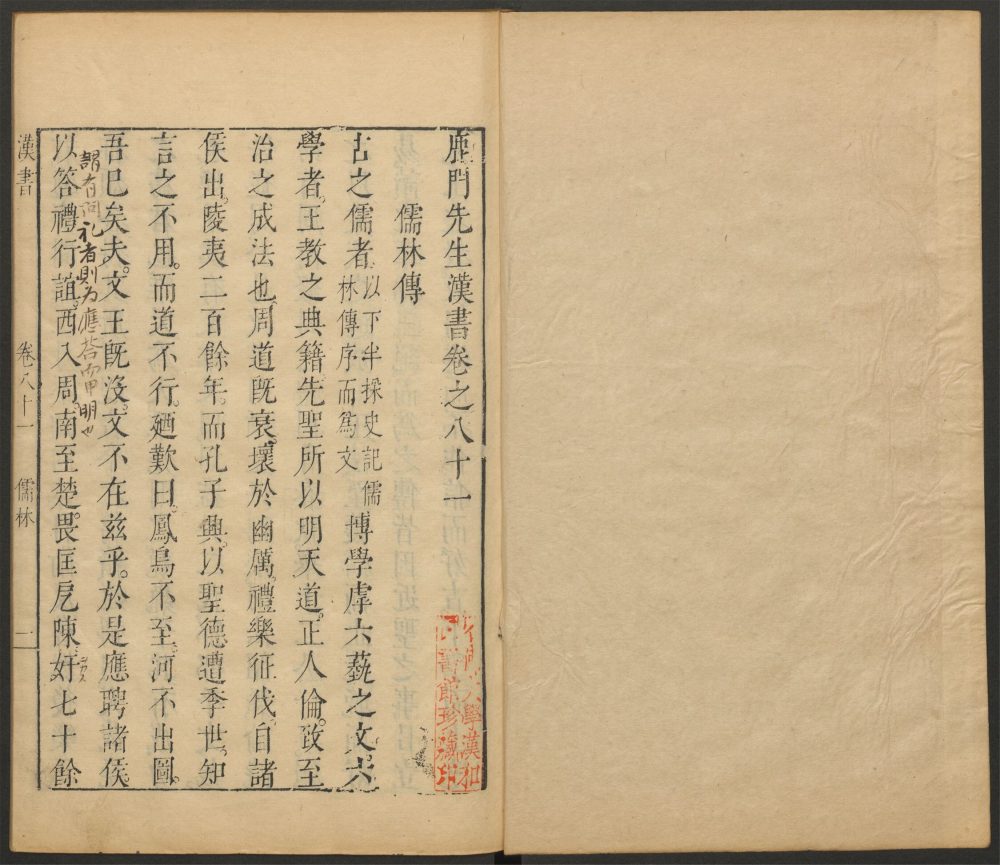 鹿門先生漢書卷之八十一
儒林傳
古之儒者以下半採史記儒林傳序而爲文博學虖六藝之文六
學者王教之典籍先聖所以明天道正人倫致至
治之成法也周道既衰壞於幽厲禮樂征伐自諸
侯出陵夷二百餘年而孔子興以聖德遭季世知
言之不用而道不行廼歎曰鳳鳥不至河不出圖
吾已矣夫文王既沒文不在兹乎於是應聘諸侯
謂有問礼者則為應荅而申明也
以答禮行誼西入周南至楚畏匡戹陳奸七十餘
漢書 卷八十一 儒林 一
學漢和
圖書館珍藏印